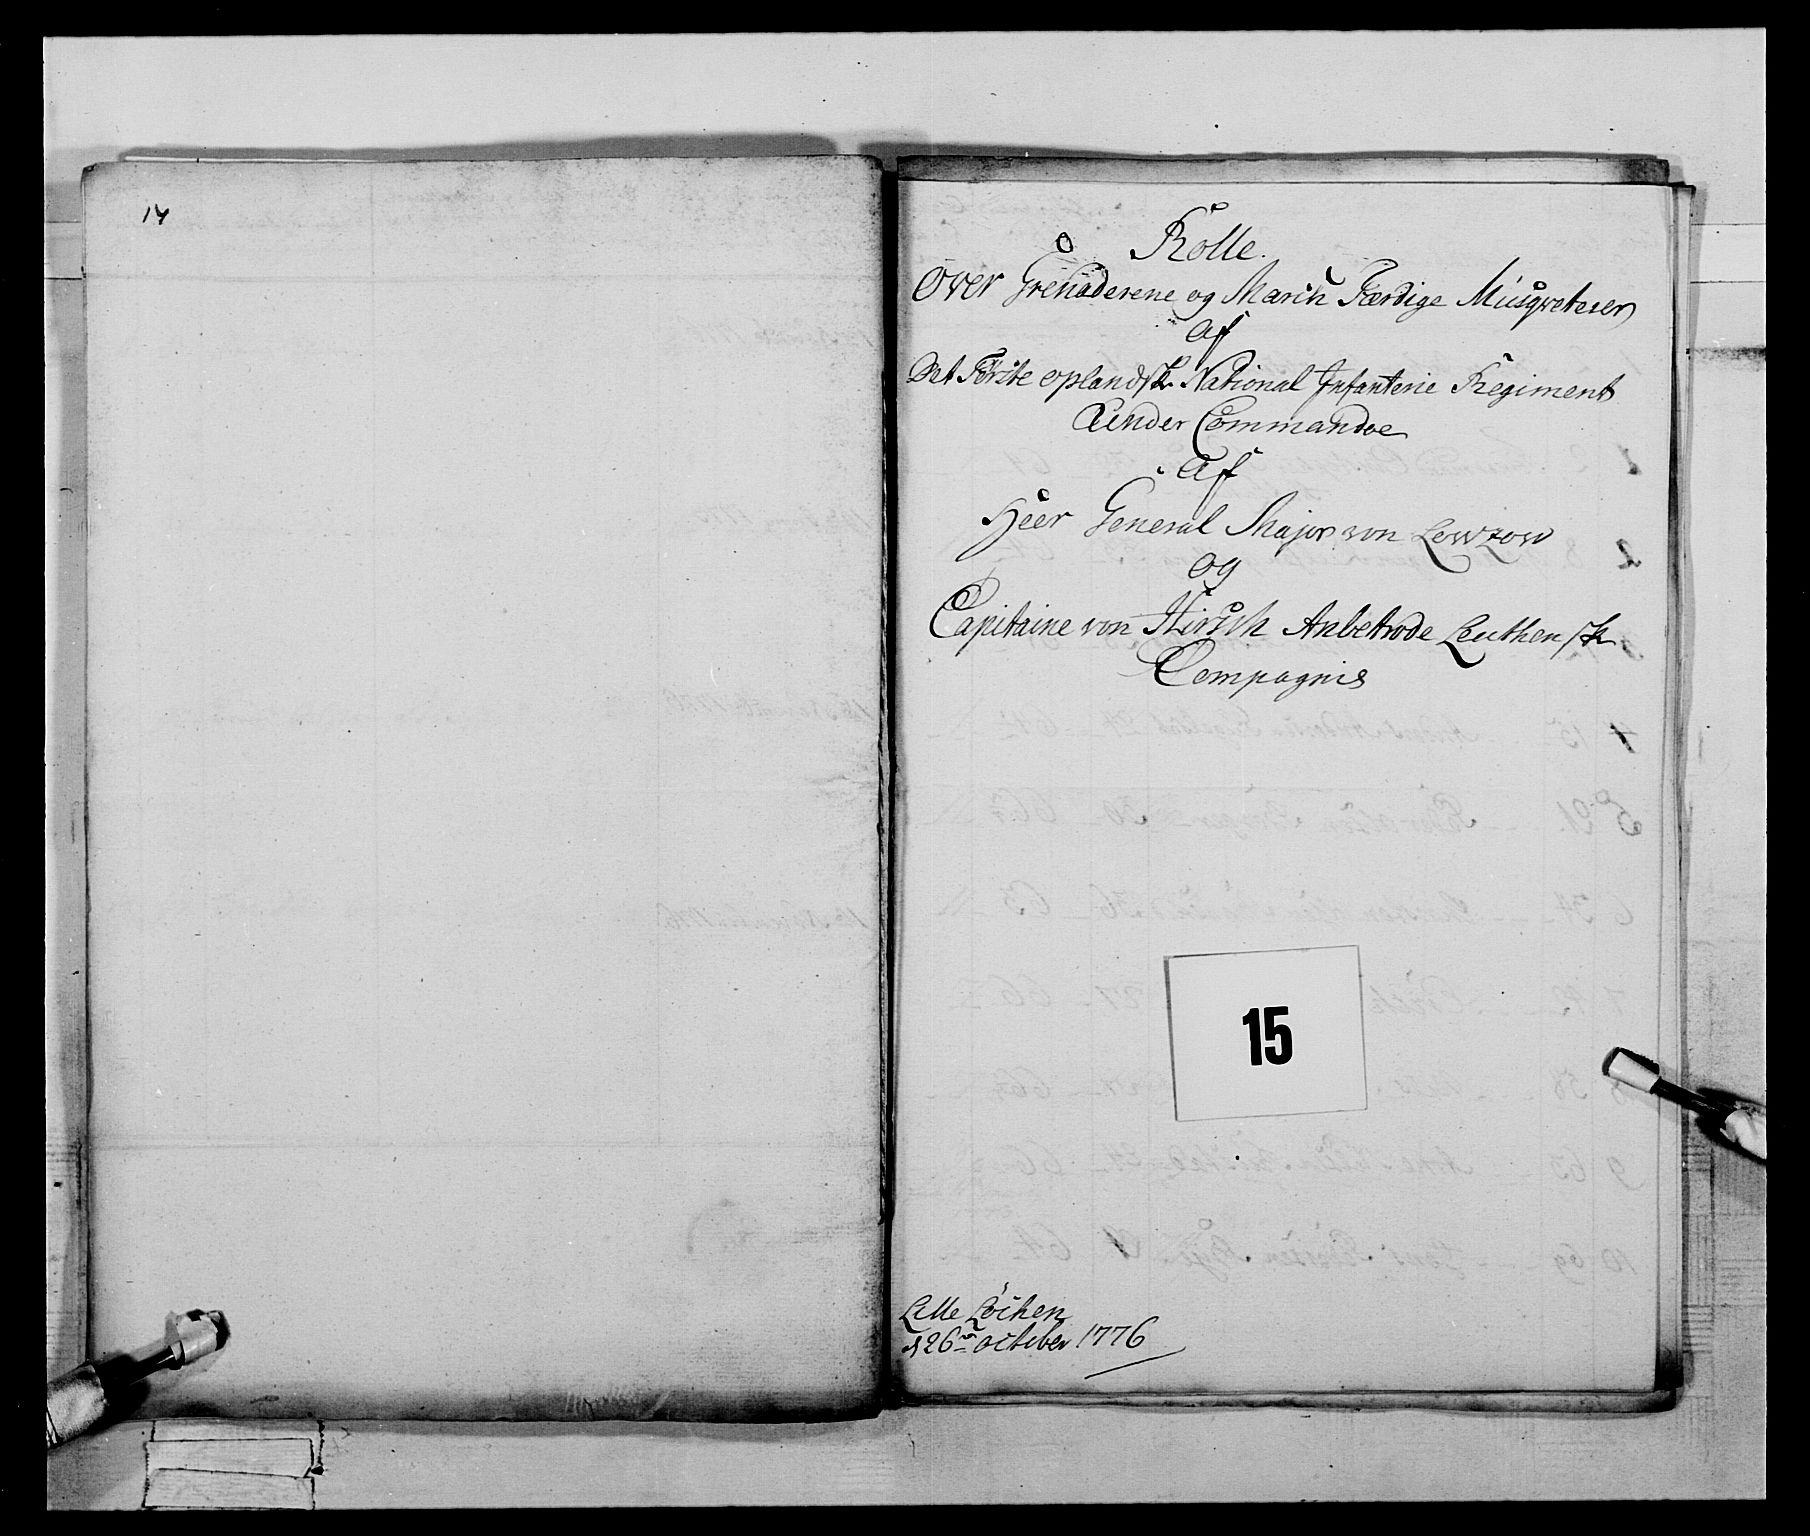 14
Rolle.
Over Grenaderene og March Færdige Musqveterer
Af
Det Förste oplandske National Infanterie Regiment
Under Commandoe
Af
Herr General Major von Lowzow
og
Capitaine von Hirsch Anbetrode Leuthenske
Compagnie
15
Lille Löchen
d 26de october 1776